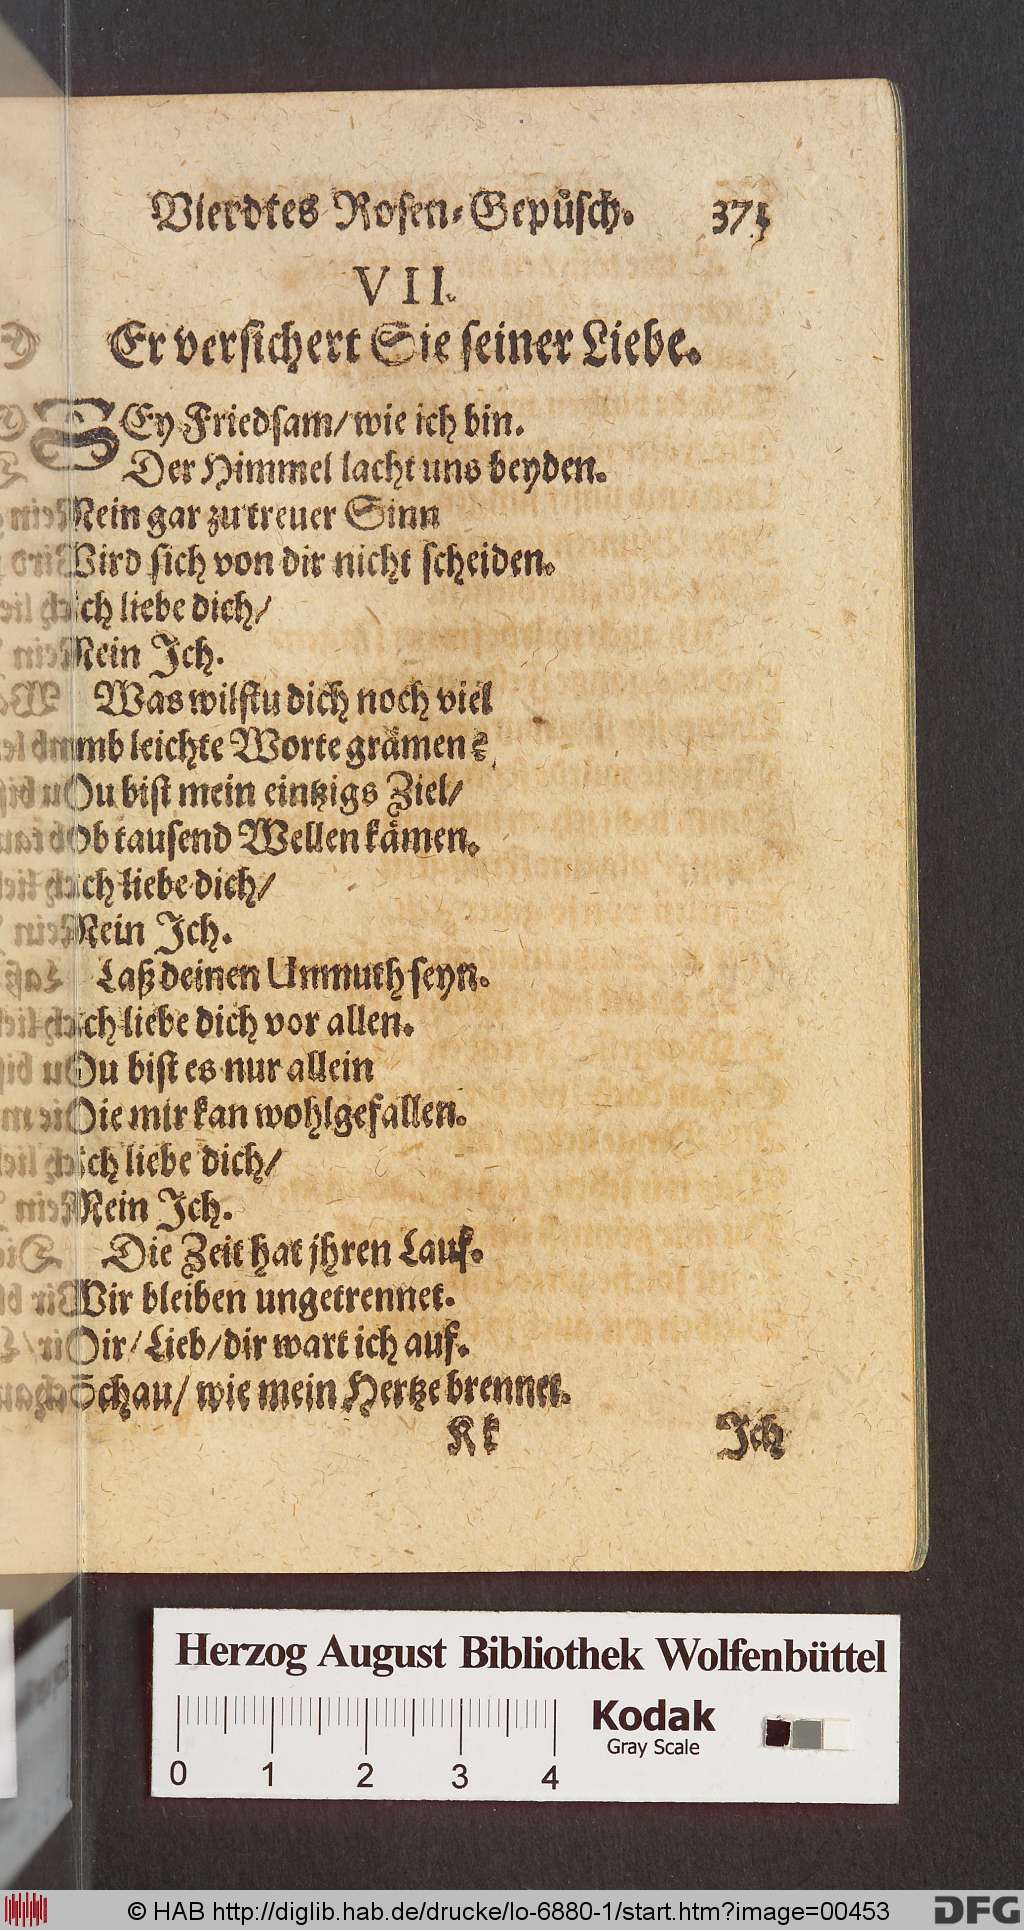 Vierdtes Rosen-Gepüsch. 371
VII.
Er versichert Sie seiner Liebe.
SEy Friedsam/ wie ich bin.
Der Himmel lacht uns beyden.
Mein gar zu treuer Sinn
Wird sich von dir nicht scheiden.
Ich liebe dich/
Mein Ich.
Was wilstu dich noch viel
umb leichte Worte grämen?
Du bist mein eintzigs Ziel/
Ob tausend Wellen kämen.
Ich liebe dich/
Mein Ich.
Laß deinen Unmuth seyn.
Ich liebe dich vor allen.
Du bist es nur allein
Die mir kan wohlgefallen.
Ich liebe dich/
Mein Ich.
Die Zeit hat jhren Lauf.
Wir bleiben ungetrennet.
Dir/ Lieb/ dir wart ich auf.
Schau/ wie mein Hertze brennet.
Kk Ich
Herzog August Bibliothek Wolfenbüttel
Kodak
Gray Scale
0 1 2 3 4
© HAB http://diglib.hab.de/drucke/lo-6880-1/start.htm?image=00453
DFG